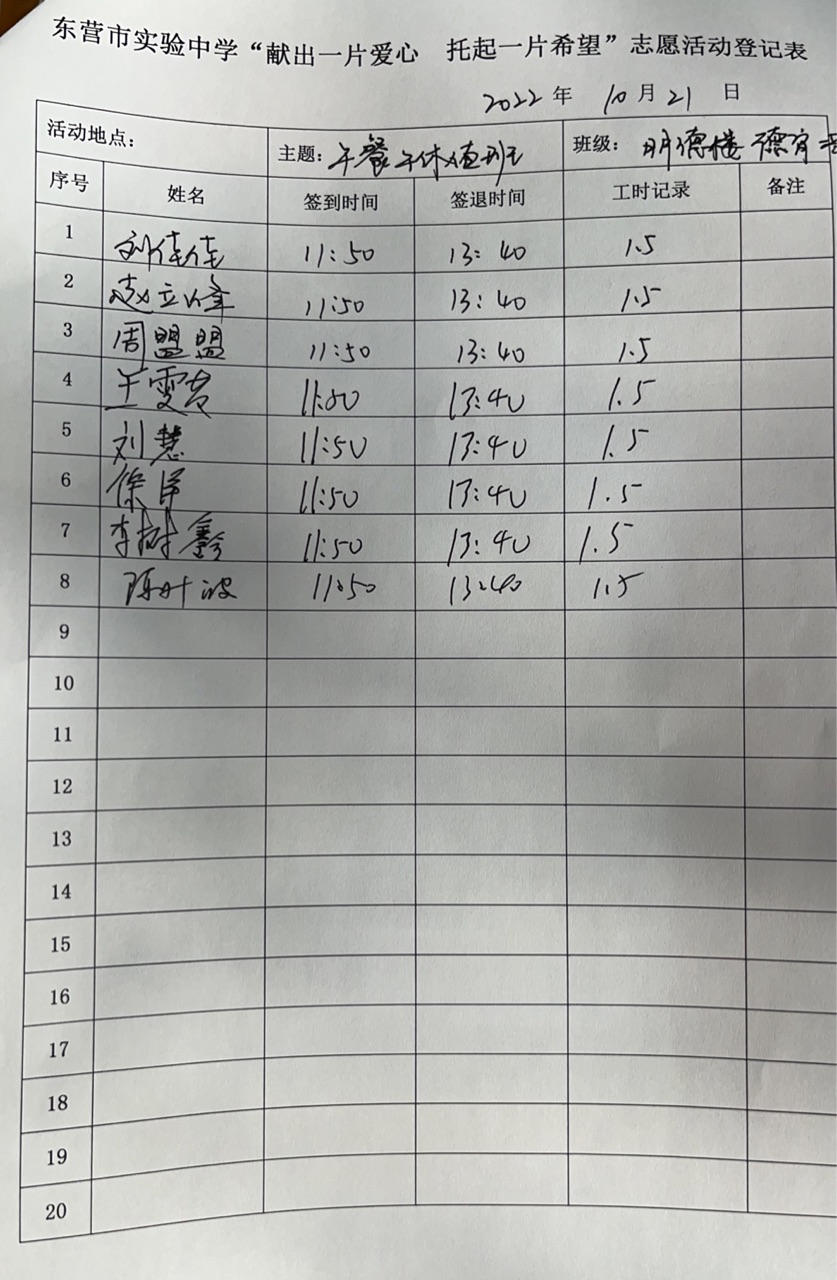 东营市实验中学“献出一片爱心 托起一片希望”志愿活动登记表
2022 年 10 月 21 日
活动地点： 主题：午餐午休值班 班级：明德楼 德育
序号 姓名 签到时间 签退时间 工时记录 备注
1 刘佳佳 11:50 13:40 1.5
2 赵立峰 11:50 13:40 1.5
3 周盟盟 11:50 13:40 1.5
4 11:50 13:40 1.5
5 刘慧 11:50 13:40 1.5
6 徐 11:50 13:40 1.5
7 李树鑫 11:50 13:40 1.5
8 陈叶波 11:50 13:40 1.5
9
10
11
12
13
14
15
16
17
18
19
20